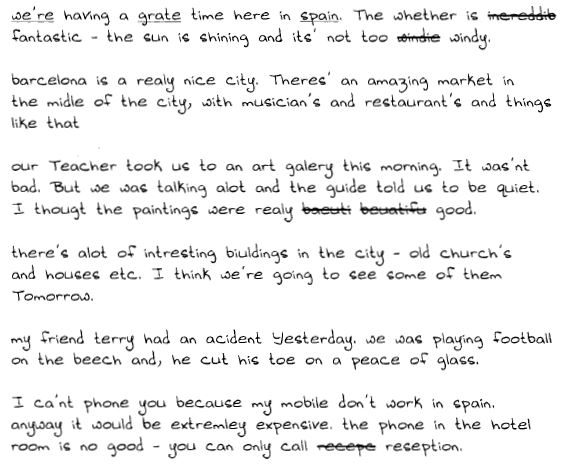 we're having a grate time here in spain. The whether is increddib
fantastic - the sun is shining and its' not too windie windy.
barcelona is a realy nice city. Theres' an amazing market in
the midle of the city, with musician's and restaurant's and things
like that
our Teacher took us to an art galery this morning. It was'nt
bad. But we was talking alot and the guide told us to be quiet.
I thougt the paintings were realy baeuti beuatifu good.
there's alot of intresting biuldings in the city - old church's
and houses etc. I think we're going to see some of them
Tomorrow.
my friend terry had an acident Yesterday. we was playing football
on the beech and, he cut his toe on a peace of glass.
I ca'nt phone you because my mobile don't work in spain.
anyway it would be extremley expensive. the phone in the hotel
room is no good - you can only call recepe reseption.